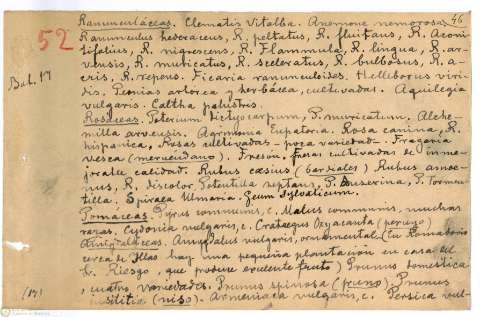 Ranunculáceas. Clematis Vitalba. Anemone nemorosa. 46
52
Ranunculus hederaceus, R. peltatus, R. fluitans, R. Aconi-
tifolius, R. nigrescens, R. Flammula, R. lingua, R. ar-
vensis, R. muricatus, R. sceleratus, R. bulbosus, R. a-
cris, R. repens. Ficaria ranunculoides. Helleborus viri-
Bal. 17
dis. Peonias arbórea y herbácea, cultivadas. Aquilegia
vulgaris. Caltha palustris.
Rosáceas. Poterum dictyocarpum, P. muricatum. Alche-
milla arvensis. Agrimonia Eupatoria. Rosa canina, R.
hispanica, Rosas cultivadas - poca variedad - Fragaria
vesca (meruendano). Fresón, fresas cultivadas de inme-
jorable calidad. Rubus cæsius (bardiales) Rubus amoe-
nus, R. discolor. Potentilla reptans, P. Anserina, P. Tormen-
tilla. Spiræa Ulmaria. Geum sylvaticum.
Pomaceas. Pyrus communis, c. Malus communis, muchas
razas. Cydonia vulgaris, c. Cratægus Oxyacanta (peruyo)
Amigdaláceas. Amygdalus vulgaris, ornamental (En Romadorio
cerca de Illas hay una pequeña plantación en casa del
Sr. Riesgo, que produce excelente fruto) Prunus domestica
cuatro variedades. Prunus spinosa (pruno) Prunus
insititia (niso). Armeniaca vulgaris, c. Persica vul-